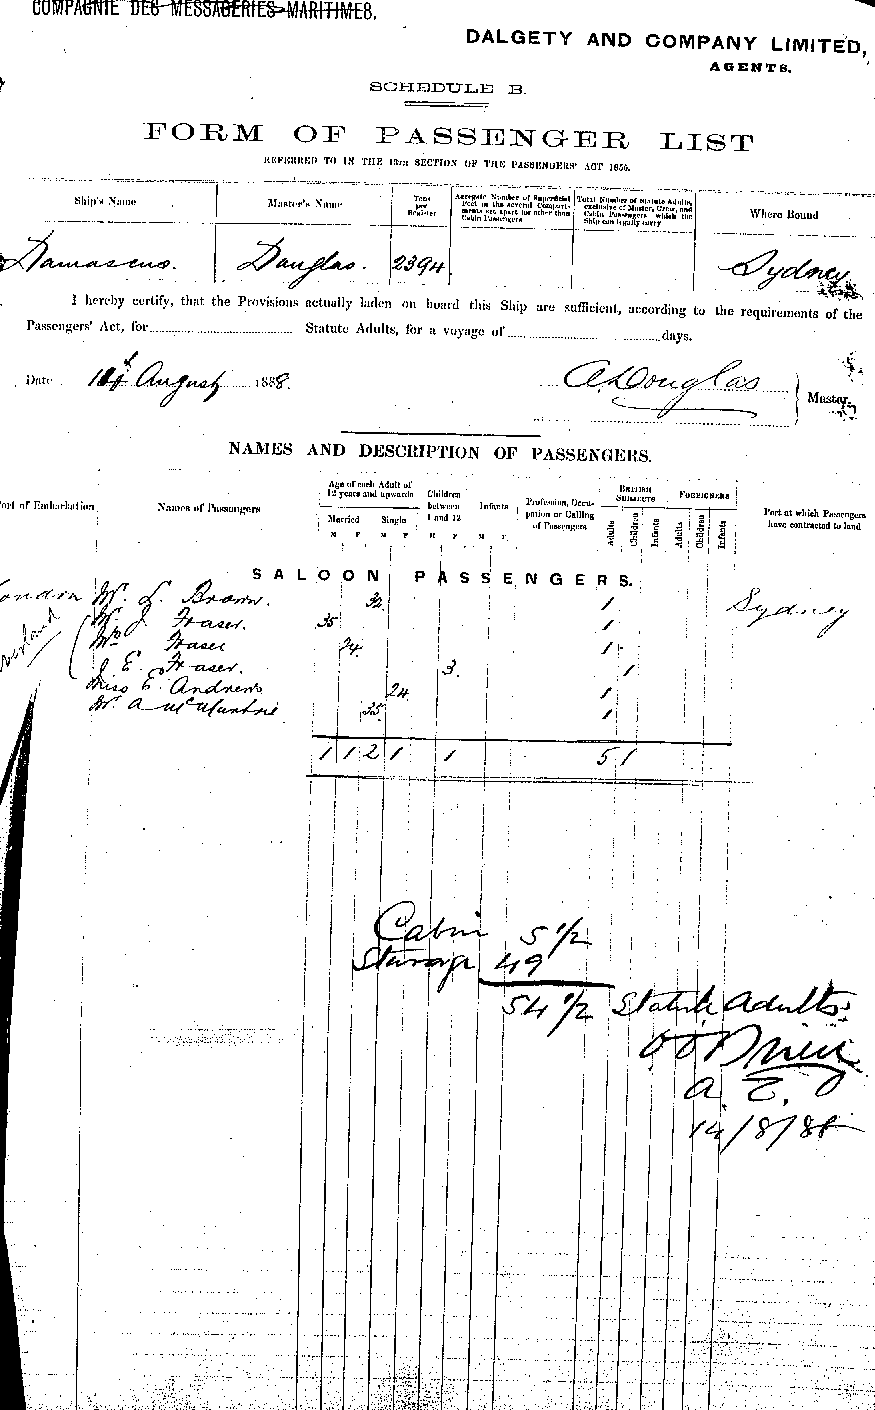 COMPAGNIE DES MESSAGERIES MARITIMES.
DALGETY AND COMPANY LIMITED,
AGENTS.
SCHEDULE B.
FORM OF PASSENGER LIST
REFERRED TO IN THE 13TH SECTION OF THE PASSENGERS' ACT 1855.
Ship's Name Master's Name Tons per Register Aggregate Number of Superficial Feet in the several Compartments set apart for other than Cabin Passengers Total Number of Statute Adults, exclusive of Master, Crew, and Cabin Passengers which the Ship can legally carry Where Bound
Damascus. Douglas. 2394 Sydney
I hereby certify, that the Provisions actually laden on board this Ship are sufficient, according to the requirements of the
Passengers' Act, for Statute Adults, for a voyage of days.
Date August 1888. A. Douglas Master.
NAMES AND DESCRIPTION OF PASSENGERS.
Port of Embarkation Names of Passengers Age of each Adult of 12 years and upwards Married Single Children between 1 and 12 Infants Profession, Occupation or Calling of Passengers BRITISH SUBJECTS Adults Children Infants FOREIGNERS Adults Children Infants Port at which Passengers have contracted to land
M F M F M F M F
SALOON PASSENGERS.
London W. L. Brown. 32 1 Sydney
Overland W. J. Fraser. 35 1
Mrs Fraser 24. 1
J E. Fraser. 3. 1
Miss E. Andrews 24 1
Mr A 35. 1
1 1 2 1 1 5 1
Cabin 5 1/2
Steerage 49
54 1/2 Statute Adults.
14/8/88